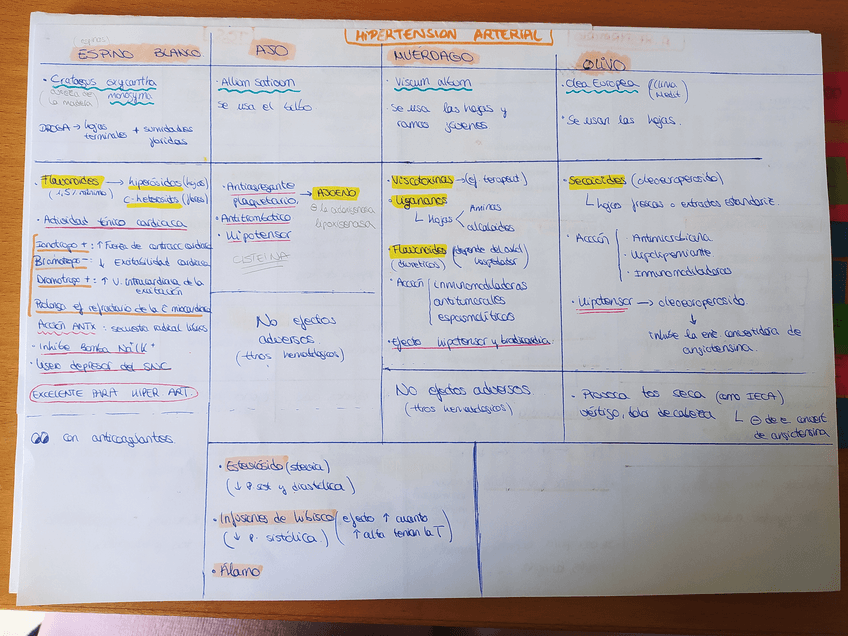 HIPERTENSION ARTERIAL
ESPINO BLANCO
· Crataegus oxycantha
monogyna
DROGA → hojas + sumidades
terminales floridas
· Flavonoides → hiperósidos (hojas)
(1,5% mínimo) C-heterósidos (flores)
· Actividad tónico cardiaca
Ionotropo + : ↑ Fuerza de contracc cardiaca
↓ Excitabilidad cardiaca
Dromotropo + : ↑ V. intracardiaca de la
excitación
Prolonga el refractario de la C miocardiaca
Acción ANTX : secuestra radical libres
· Inhibe Bomba Na⁺/K⁺
· Ligero depresor del SNC
EXCELENTE PARA HIPER ART.
con anticoagulantes
AJO
· Allium sativum
Se usa el bulbo
· Antiagregante → AJOENO
plaquetario.
· Antitrombótico
lipoxigenasa
· Hipotensor
CISTEINA
No efectos
adversos
(-ttnos hematológicos)
MUERDAGO
· Viscum album
Se usa las hojas y
ramas jóvenes
· Viscotoxinas → (ef terapeut)
· Lignanos
↳ Hojas Aminas
alcaloides
· Flavonoides (depende del arbol
(diureticos) hospedador)
· Acción inmunomoduladoras
antitumorales
espasmolíticos
· Efecto hipotensor y bradicardia.
No efectos adversos
(-ttnos hematológicos)
OLIVO
· Olea Europea (Clima
Medit)
· Se usan las hojas.
· Secoiridoides (oleoeuroperosido)
↳ hojas frescas o extractos estandariz
· Acción Antimicrobiana
Hipolipemiante
Inmunomoduladoras
· Hipotensor → oleoeuroperosido
↓
inhibe la enz convertidora de
angiotensina.
· Provoca tos seca (como IECA)
vértigo, dolor de cabeza ↳ ⊖ de e. convert
de angiotensina
· Esteviósido (stevia)
(↓ P sist y diastólica)
· Infusiones de hibisco (efecto ↑ cuanto
(↓ P. sistólica) ↑ alta tenían la T)
· Álamo